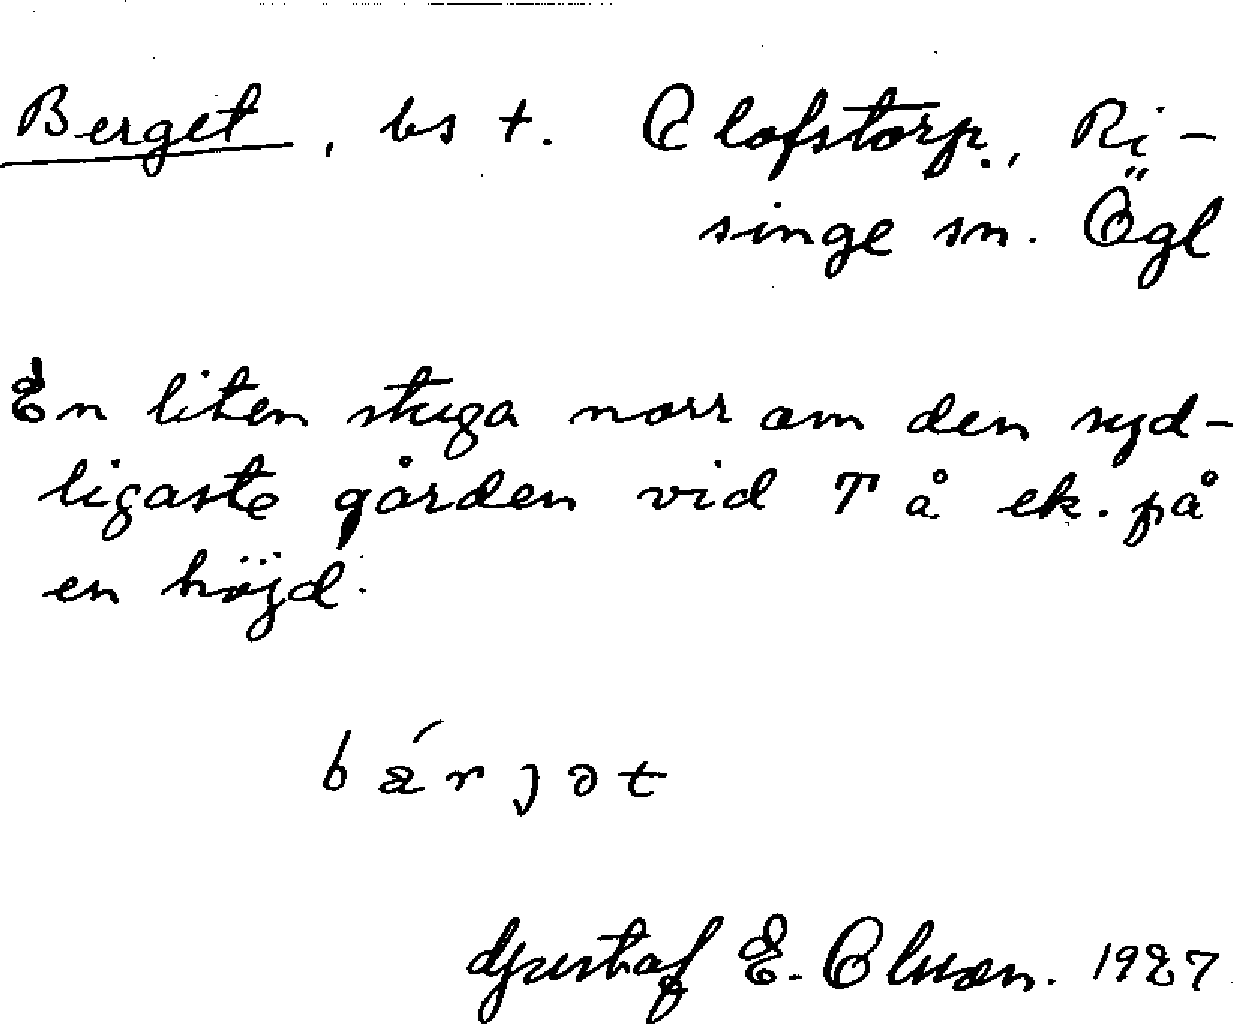 Berget, bs t. Olofstorp., Ri-
singe sn. Ögl
En liten stuga norr om den syd-
ligaste gården vid T å ek. på
en höjd.
bǽrjət
Gustaf E. Olsson. 1927